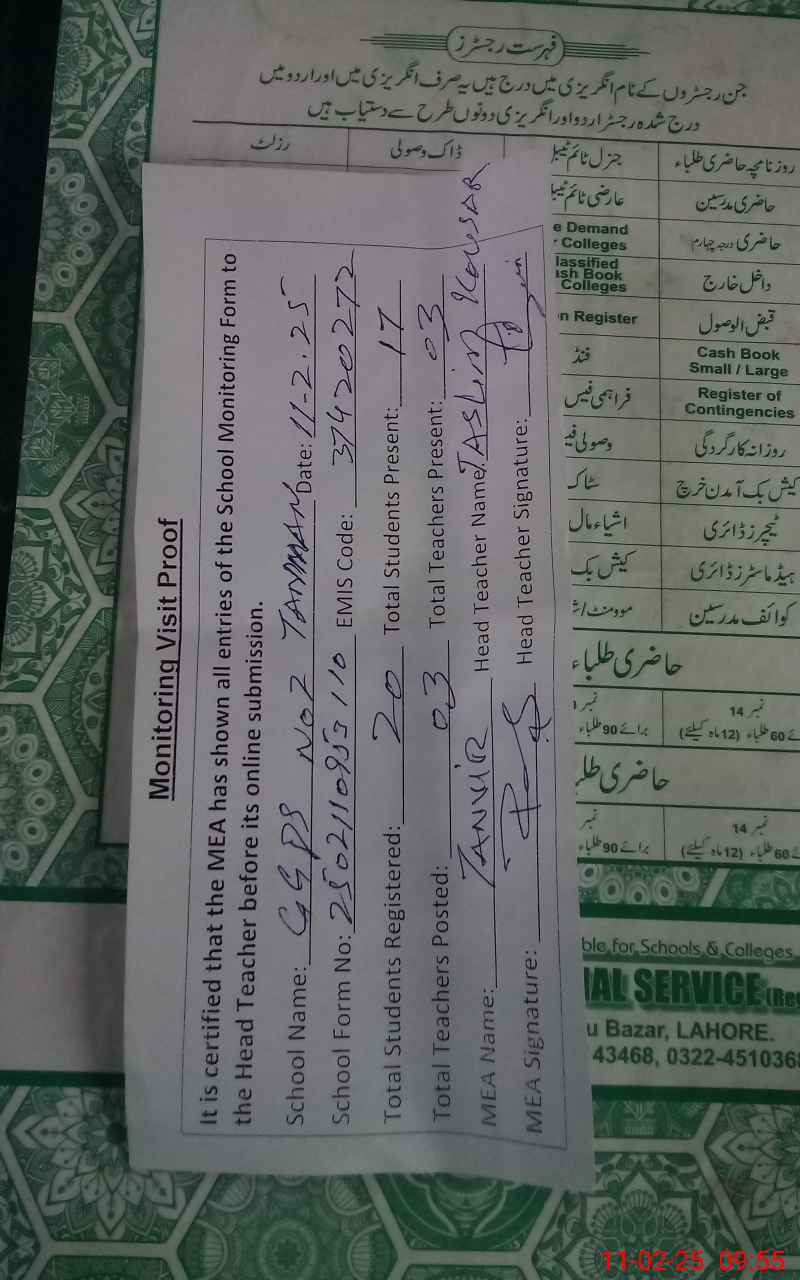 Monitoring Visit Proof
It is certified that the MEA has shown all entries of the School Monitoring Form to
the Head Teacher before its online submission.
School Name: GGPS NO2 TANMAN Date: 11-2.25
School Form No: 2502110953110 EMIS Code: 37420272
Total Students Registered: 20 Total Students Present: 17
Total Teachers Posted: 03 Total Teachers Present: 03
MEA Name: TANVIR Head Teacher Name: TASLIM KOUSAR
MEA Signature: Head Teacher Signature:
فہرست رجسٹرز
جن رجسٹروں کے نام انگریزی میں درج ہیں یہ صرف انگریزی میں اور اردو میں
درج شدہ رجسٹر اردو اور انگریزی دونوں طرح سے دستیاب ہیں
روزنامچہ حاضری طلباء جنرل ٹائم ٹیبل ڈاک وصولی رزلٹ
حاضری مدرسین عارضی ٹائم ٹیبل
حاضری درجہ چہارم e Demand
Colleges
داخل خارج lassified
ash Book
Colleges
قبض الوصول n Register
Cash Book
Small / Large فنڈ
Register of
Contingencies فراہمی فیس
روزانہ کارگردگی وصولی فیـ
کیش بک آمدن خرچ سٹاک
ٹیچرز ڈائری اشیاء مال
ہیڈ ماسٹرز ڈائری کیش بک
کوائف مدرسین موومنٹ/
حاضری طلباء
نمبر 14
ئے 60 طلباء (12 ماہ کیلئے) برائے 90 طلباء
حاضری طلبـ
نمبر 14
ئے 60 طلباء (12 ماہ کیلئے) برائے 90 طلباء
ble for Schools & Colleges
IAL SERVICE (Reg
u Bazar, LAHORE.
43468, 0322-4510368
11-02-25 09:55